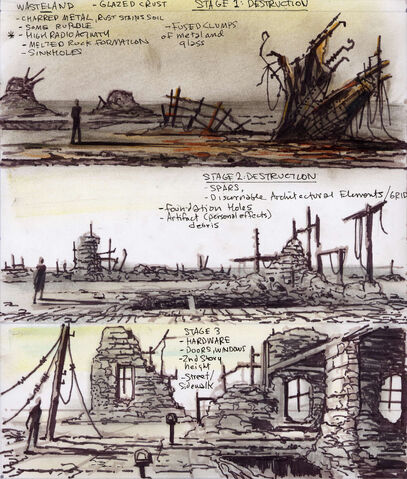 WASTELAND - GLAZED CRUST STAGE 1: DESTRUCTION
- CHARRED METAL, RUST STAINS SOIL
- SOME RUBBLE - FUSED CLUMPS
* - HIGH RADIOACTIVITY of metal and
- MELTED ROCK FORMATION glass
- SINKHOLES
STAGE 2: DESTRUCTION
- SPARS,
- Discernable Architectural Elements/GRID
- Foundation Holes
- Artifact (personal effects)
debris
STAGE 3
- HARDWARE
- DOORS, WINDOWS
- 2nd Story
height
- Street/
Sidewalk